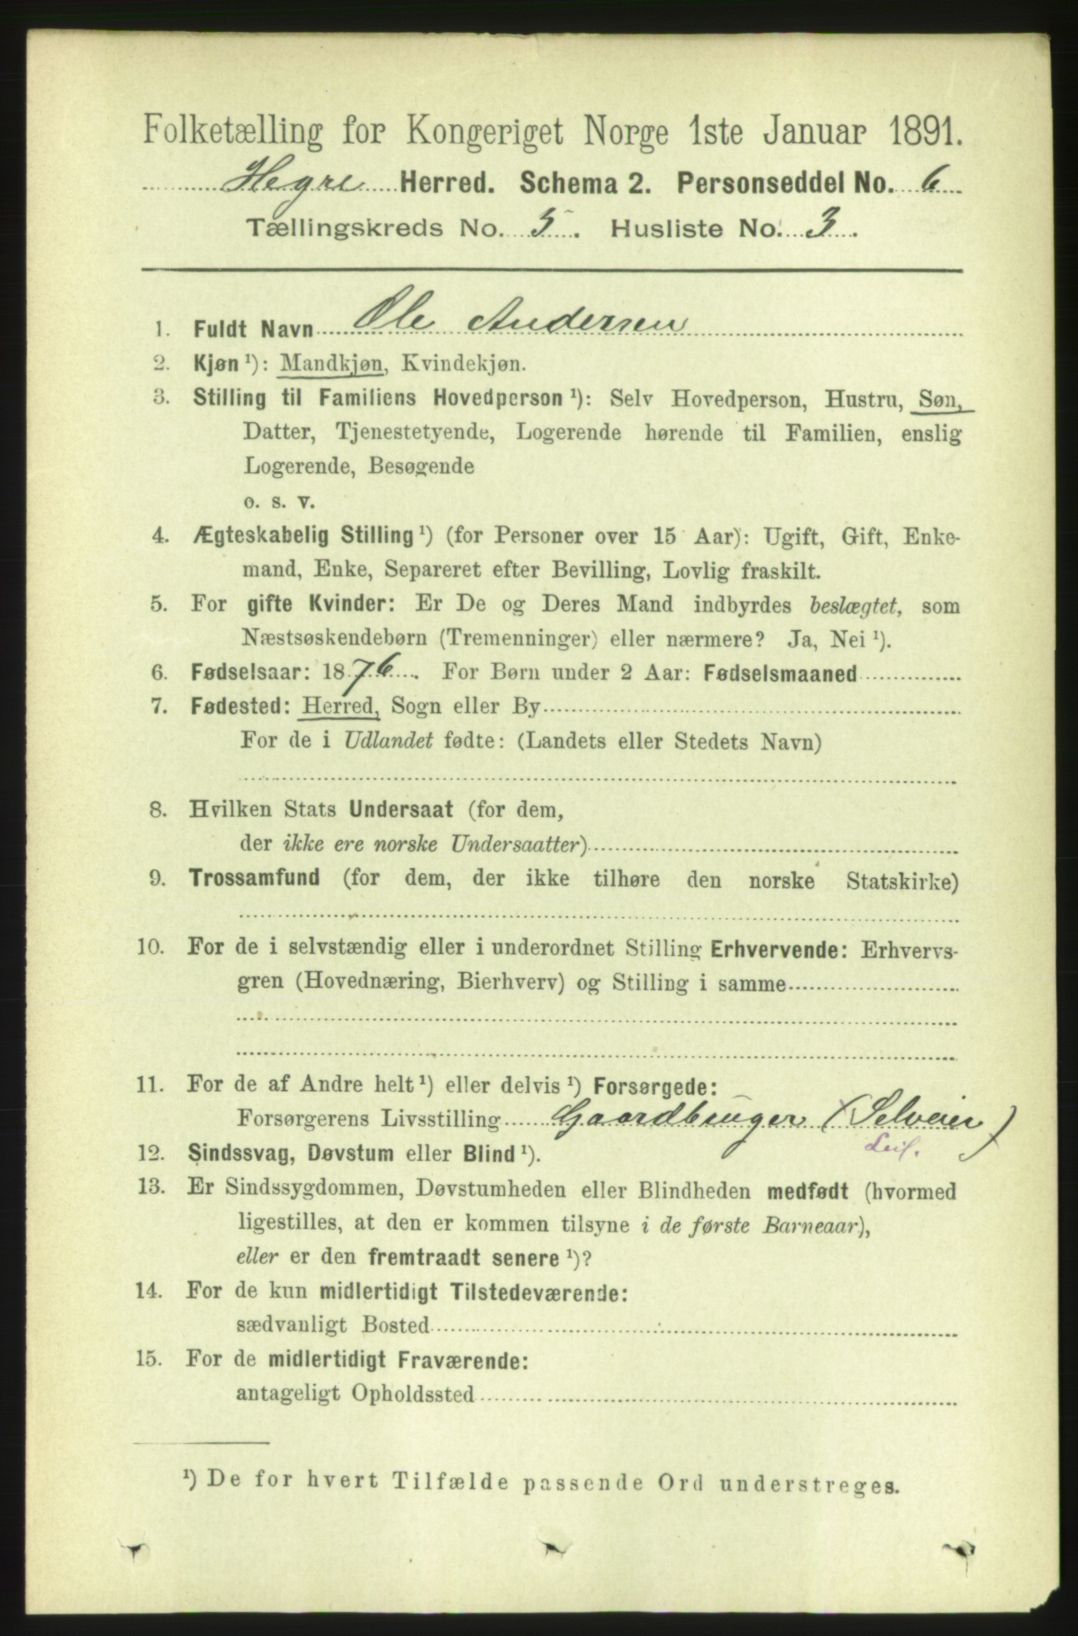 Folketælling for Kongeriget Norge 1ste Januar 1891.
Hegre Herred. Schema 2. Personseddel No. 6
Tællingskreds No. 5. Husliste No. 3.
1. Fuldt Navn Ole Andersen
2. Kjøn ¹): Mandkjøn, Kvindekjøn.
3. Stilling til Familiens Hovedperson ¹): Selv Hovedperson, Hustru, Søn,
Datter, Tjenestetyende, Logerende hørende til Familien, enslig
Logerende, Besøgende
o. s. v.
4. Ægteskabelig Stilling ¹) (for Personer over 15 Aar): Ugift, Gift, Enke-
mand, Enke, Separeret efter Bevilling, Lovlig fraskilt.
5. For gifte Kvinder: Er De og Deres Mand indbyrdes beslægtet, som
Næstsøskendebørn (Tremenninger) eller nærmere? Ja, Nei ¹).
6. Fødselsaar: 1876. For Børn under 2 Aar: Fødselsmaaned
7. Fødested: Herred, Sogn eller By
For de i Udlandet fødte: (Landets eller Stedets Navn)
8. Hvilken Stats Undersaat (for dem,
der ikke ere norske Undersaatter)
9. Trossamfund (for dem, der ikke tilhøre den norske Statskirke)
10. For de i selvstændig eller i underordnet Stilling Erhvervende: Erhvervs-
gren (Hovednæring, Bierhverv) og Stilling i samme
11. For de af Andre helt ¹) eller delvis ¹) Forsørgede:
Forsørgerens Livsstilling Gaardbruger (Selveier)
Leil.
12. Sindssvag, Døvstum eller Blind ¹).
13. Er Sindssygdommen, Døvstumheden eller Blindheden medfødt (hvormed
ligestilles, at den er kommen tilsyne i de første Barneaar),
eller er den fremtraadt senere ¹)?
14. For de kun midlertidigt Tilstedeværende:
sædvanligt Bosted
15. For de midlertidigt Fraværende:
antageligt Opholdssted
¹) De for hvert Tilfælde passende Ord understreges.